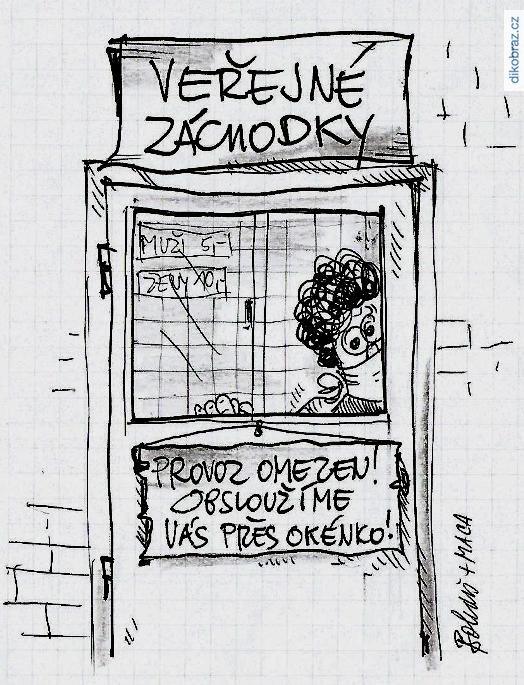 dikobraz.cz
VEŘEJNÉ
ZÁCHODKY
MUŽI 5,-
ŽENY 10,-
PROVOZ OMEZEN!
OBSLOUŽÍME
VÁS PŘES OKÉNKO!
+ MACA